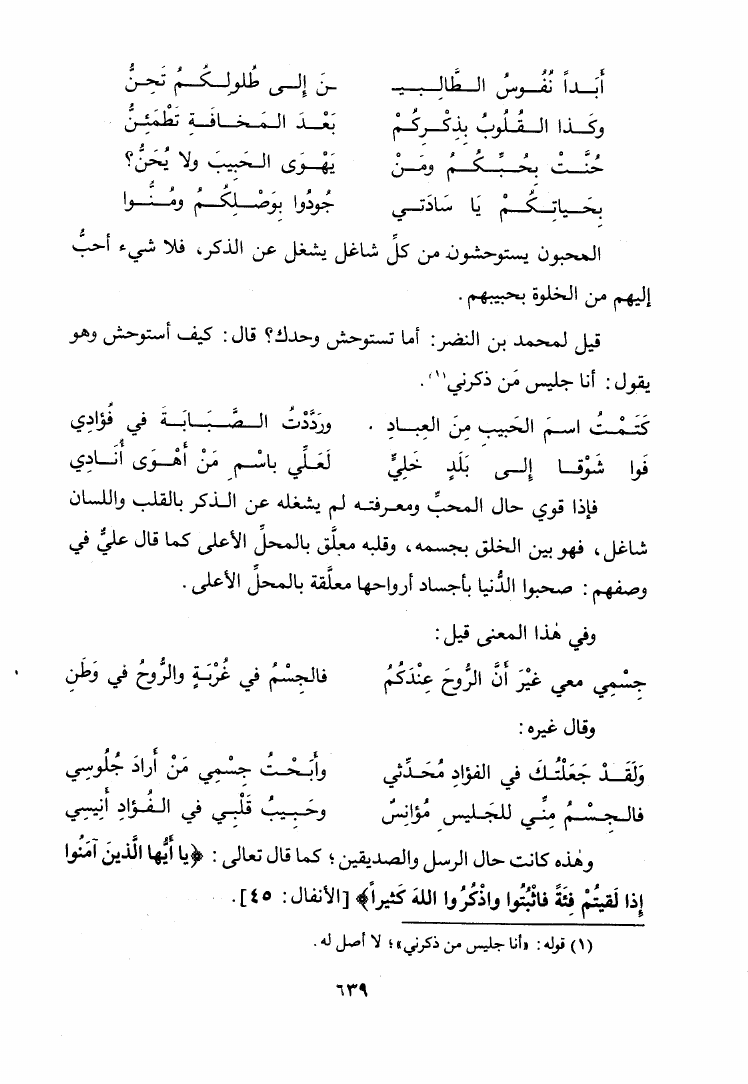 أَبَـداً نُفُـوسُ الـطَّالِـبِيـ ـنَ إِلـى طُلولِـكُـمْ تَحِنُّ
وكَـذا القُـلُوبُ بِذِكْـرِكُمْ بَعْـدَ المَـخـافَـةِ تَطْمَئِنُّ
حُنَّـتْ بِحُـبِّـكُـمُ ومَـنْ يَهْـوَى الحَبيبَ ولا يُحَنُّ؟
بِحَـياتِـكُـمْ يَا سَادَتـي جُودُوا بِوَصْـلِكُـمُ ومُنُّـوا
المحبون يستوحشون من كلِّ شاغل يشغل عن الذكر، فلا شيء أحبُّ
إليهم من الخلوة بحبيبهم.
قيل لمحمد بن النضر: أما تستوحش وحدك؟ قال: كيف أستوحش وهو
يقول: أنا جليس مَن ذكرني(١).
كَتَمْـتُ اسمَ الحَبيبِ مِنَ العِبـادِ . ورَدَّدْتُ الـصَّـبَـابَـةَ في فُؤادِي
فَوا شَوْقـا إلـى بَلَدٍ خَلِيٍّ لَعَلِّي باسْـمِ مَنْ أَهْـوَى أُنَـادِي
فإذا قوي حال المحبِّ ومعرفته لم يشغله عن الذكر بالقلب واللسان
شاغل، فهو بين الخلق بجسمه، وقلبه معلَّق بالمحلِّ الأعلى كما قال عليٌّ في
وصفهم: صحبوا الدُّنيا بأجساد أرواحها معلَّقة بالمحلِّ الأعلى.
وفي هٰذا المعنى قيل:
جِسْمِي معي غَيْرَ أَنَّ الرُّوحَ عِنْدَكُمُ فالجِسْمُ في غُرْبَةٍ والرُّوحُ في وَطَنِ
وقال غيره:
وَلَقَـدْ جَعَلْتُـكَ في الفؤادِ مُحَدِّثي وأَبَحْـتُ جِسْمِي مَنْ أَرادَ جُلُوسِي
فالـجِسْـمُ مِنِّـي للجَلِيسِ مُؤانسٌ وحَبِيبُ قَلْبِي في الـفُـؤادِ أَنِيسِي
وهٰذه كانت حال الرسل والصديقين؛ كما قال تعالى: ﴿يا أَيُّها الَّذينَ آمَنُوا
إِذا لَقيتُمْ فِئَةً فاثْبُتُوا واذْكُرُوا اللهَ كَثيراً﴾ [الأنفال: ٤٥].
(١) قوله: «أنا جليس من ذكرني»؛ لا أصل له.
٦٣٩